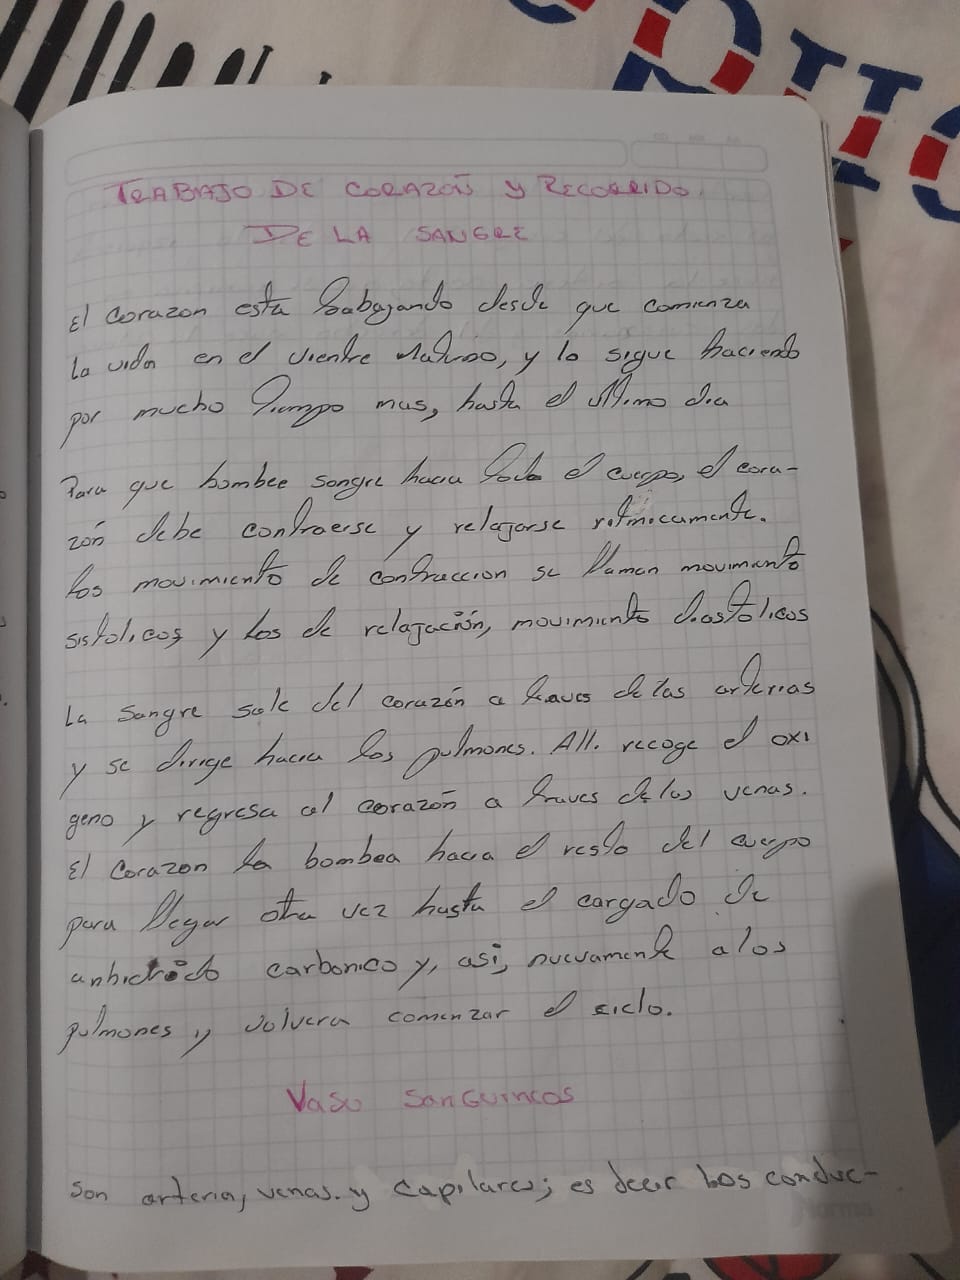 TRABAJO DE CORAZON Y RECORRIDO
DE LA SANGRE
El corazon esta trabajando desde que comienza
la vida en el vientre Materno, y lo sigue haciendo
por mucho Tiempo mas, hasta el ultimo dia
Para que bombee sangre hacia todo el cuerpo, el cora-
zón debe contraerse y relajarse ritmicamente.
los movimiento de contraccion se llaman movimiento
sistolicos y los de relajación, movimiento diastolicos
La sangre sale del corazón a traves de las arterias
y se dirige hacia los pulmones. Alli recoge el oxi
geno y regresa al corazón a traves de las venas.
El corazon la bombea hacia el resto del cuerpo
para llegar otra vez hasta el cargado de
anhidrido carbonico y, asi, nuevamente a los
pulmones y volvera comenzar el siclo.
Vaso Sanguineos
Son arteria, venas. y capilares; es decir los conduc-
Norma